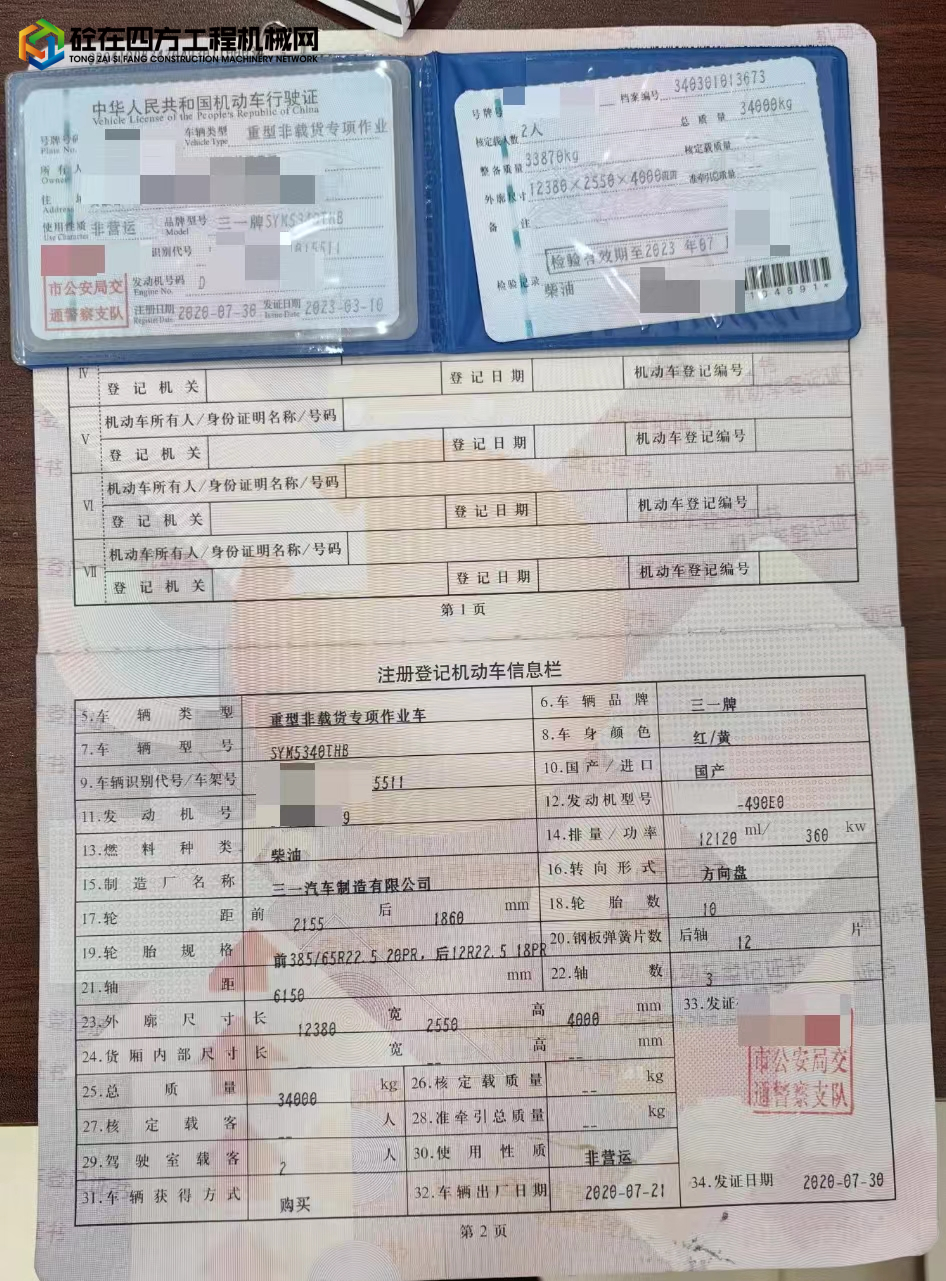 砼在四方工程机械网
TONG ZAI SI FANG CONSTRUCTION MACHINERY NETWORK
中华人民共和国机动车行驶证
Vehicle License of the People's Republic of China
号牌号码
Plate No.
车辆类型 重型非载货专项作业
Vehicle Type
所有人
Owner
住
Address
使用性质 非营运
Use Character
品牌型号 三一牌SYM5340THB
Model
识别代号 5511
市公安局交
通警察支队
发动机号码 D
Engine No.
注册日期 2020-07-30 发证日期 2023-03-10
Register Date Issue Date
号牌号 档案编号 340301013673
核定载人数 2人 总质量 34000kg
整备质量 33870kg 核定载质量
外廓尺寸 12380×2550×4000 准牵引总质量
备注
检验有效期至2023 年07
检验记录
柴油
104891*
IV 登记机关 登记日期 机动车登记编号
V 机动车所有人/身份证明名称/号码
登记机关 登记日期 机动车登记编号
VI 机动车所有人/身份证明名称/号码
登记机关 登记日期 机动车登记编号
VII 机动车所有人/身份证明名称/号码
登记机关 登记日期 机动车登记编号
第 1 页
注册登记机动车信息栏
5.车辆类型 重型非载货专项作业车 6.车辆品牌 三一牌
7.车辆型号 SYM5340THB 8.车身颜色 红/黄
9.车辆识别代号/车架号 5511 10.国产/进口 国产
11.发动机号 9 12.发动机型号 -490E0
13.燃料种类 柴油 14.排量/功率 12120 ml/ 360 kw
15.制造厂名称 三一汽车制造有限公司 16.转向形式 方向盘
17.轮距 前 2155 后 1860 mm 18.轮胎数 10
19.轮胎规格 前385/65R22.5 20PR，后12R22.5 18PR 20.钢板弹簧片数 后轴 12 片
21.轴距 6150 mm 22.轴数 3
23.外廓尺寸 长 12380 宽 2550 高 4000 mm 33.发证
24.货厢内部尺寸 长 -- 宽 -- 高 -- mm
市公安局交
通警察支队
25.总质量 34000 kg 26.核定载质量 -- kg
27.核定载客 -- 人 28.准牵引总质量 -- kg
29.驾驶室载客 2 人 30.使用性质 非营运
31.车辆获得方式 购买 32.车辆出厂日期 2020-07-21 34.发证日期 2020-07-30
第 2 页